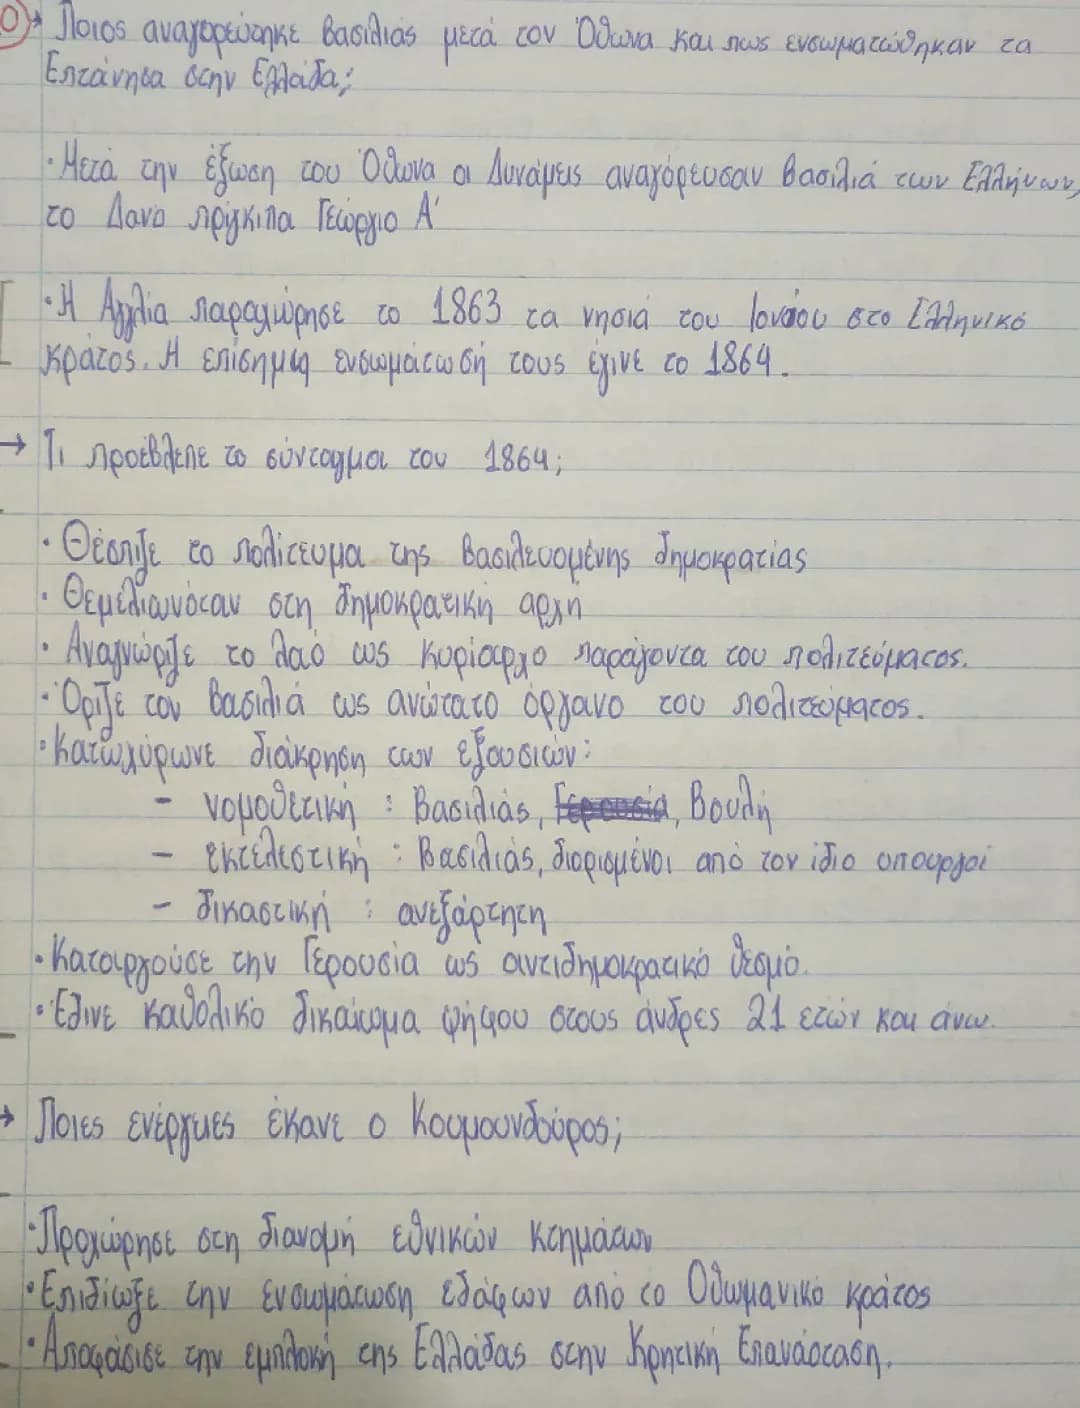 → Ποιος αναγορεύτηκε βασιλιάς μετά τον Όθωνα και πως ενσωματώθηκαν τα
Επτάνησα στην Ελλάδα;
· Μετά την έξωση του Όθωνα οι Δυνάμεις αναγόρευσαν βασιλιά των Ελλήνων,
το Δανό πρίγκιπα Γεώργιο Α'
· Η Αγγλία παραχώρησε το 1863 τα νησιά του Ιονίου στο Ελληνικό
κράτος. Η επίσημη ενσωμάτωσή τους έγινε το 1864.
→ Τι προέβλεπε το σύνταγμα του 1864;
· Θέσπιζε το πολίτευμα της βασιλευομένης δημοκρατίας
· Θεμελιωνόταν στη δημοκρατική αρχή
· Αναγνώριζε το λαό ως κυρίαρχο παράγοντα του πολιτεύματος.
· Όριζε τον βασιλιά ως ανώτατο όργανο του πολιτεύματος.
· Κατωχύρωνε διάκρηση των εξουσιών:
- νομοθετική : Βασιλιάς, Γερουσία, Βουλή
- εκτελεστική : Βασιλιάς, διορισμένοι από τον ίδιο υπουργοί
- δικαστική : ανεξάρτητη
· Καταργούσε την Γερουσία ως αντιδημοκρατικό θεσμό.
· Έδινε καθολικό δικαίωμα ψήφου στους άνδρες 21 ετών και άνω.
→ Ποιες ενέργιες έκανε ο Κουμουνδούρος;
· Προχώρησε στη διανομή εθνικών κτημάτων
· Επιδίωξε την ενσωμάτωση εδάφων από το Οθωμανικό κράτος
· Αποφάσισε την εμπλοκή της Ελλάδας στην Κρητική Επανάσταση.